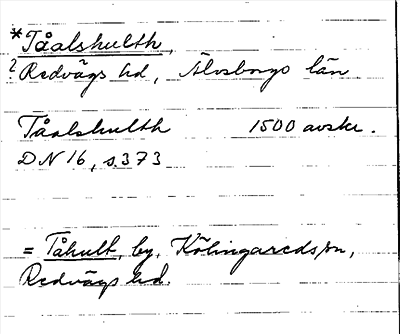 *Tåalshulth,
? Redvägs hd, Älvsborgs län
Tåalshulth 1500 avskr.
DN 16, s. 373
= Tåhult, by, Kölingareds sn,
Redvägs hd.